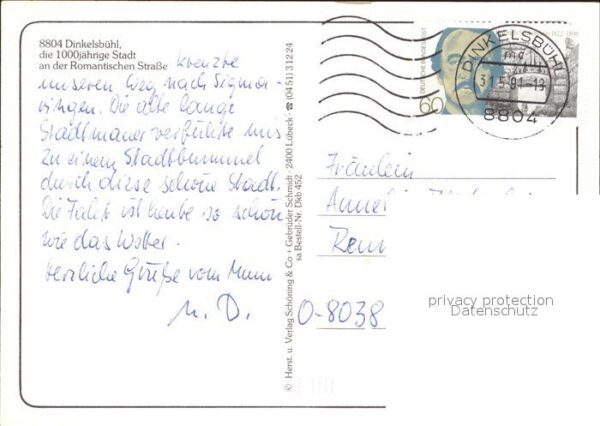 8804 Dinkelsbühl,
die 1000jährige Stadt
an der Romantischen Straße
kreuzte
unseren Weg nach Sigma-
ringen. Die alte lange
Stadtmauer verführte uns
zu einem Stadtbummel
durch diese schöne Stadt.
Die Fahrt ist heute so schön
wie das Wetter.
Herzliche Grüße vom
u. D.
© Herst. u. Verlag Schöning & Co + Gebrüder Schmidt · 2400 Lübeck · ☎ (04 51) 3 12 24
sa Bestell-Nr. Dkb 452
DEUTSCHE BUNDESPOST
60
1822-1890
DINKELSBÜHL
mc
31.5.91-13
8804
Fräulein
O-8038
privacy protection
Datenschutz